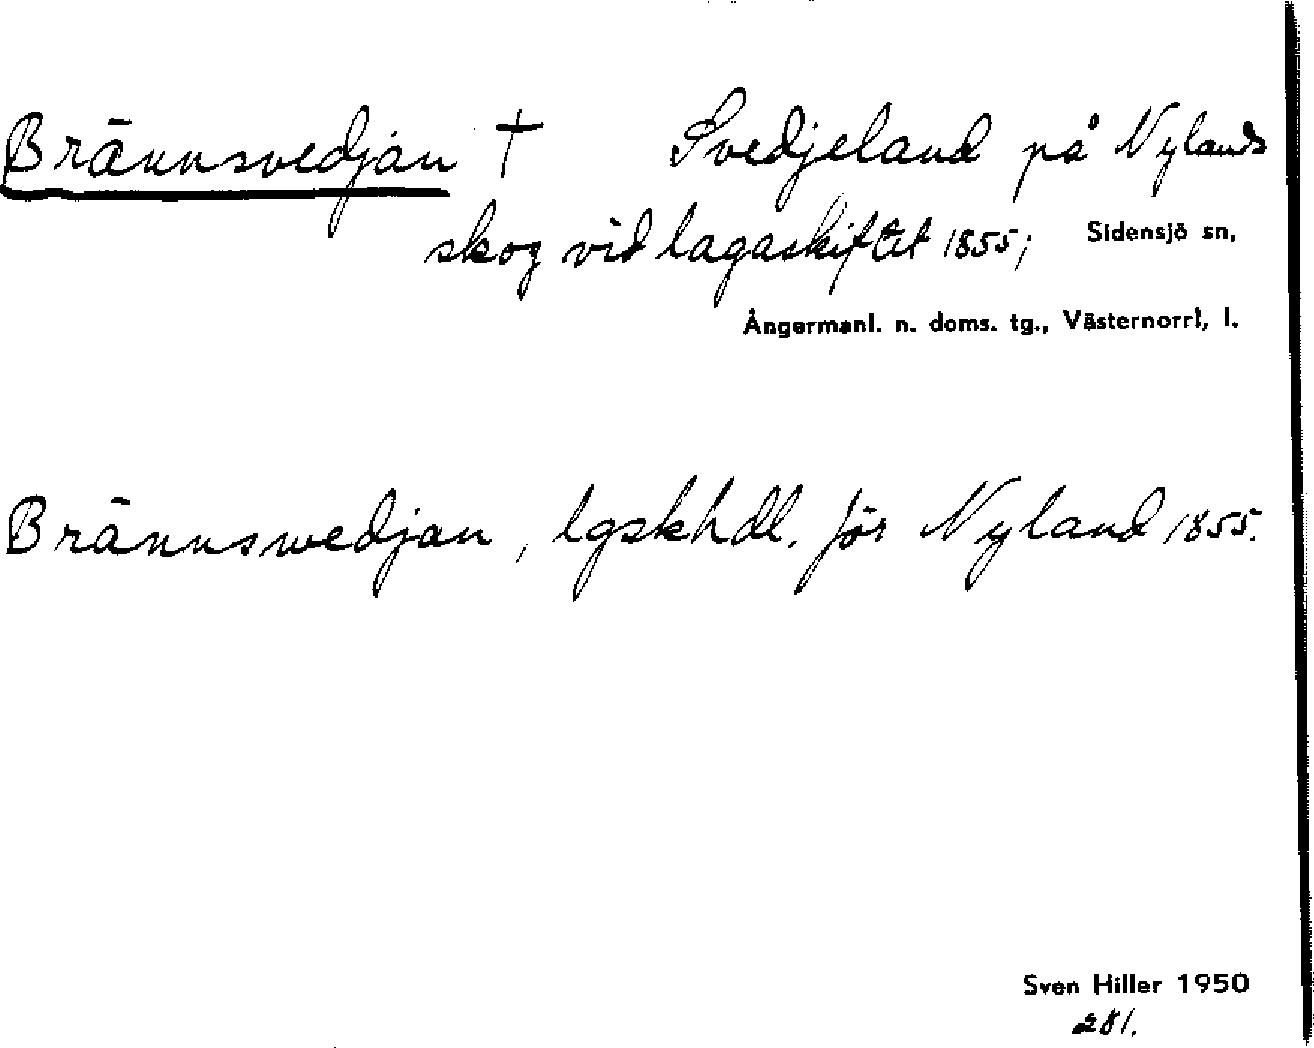 Brännsvedjan † Svedjeland på Nylands
skog vid lagaskiftet 1855; Sidensjö sn,
Ångermanl. n. doms. tg., Västernorrl, l.
Brännswedjan, lgskhdl. för Nyland 1855.
Sven Hiller 1950
281.